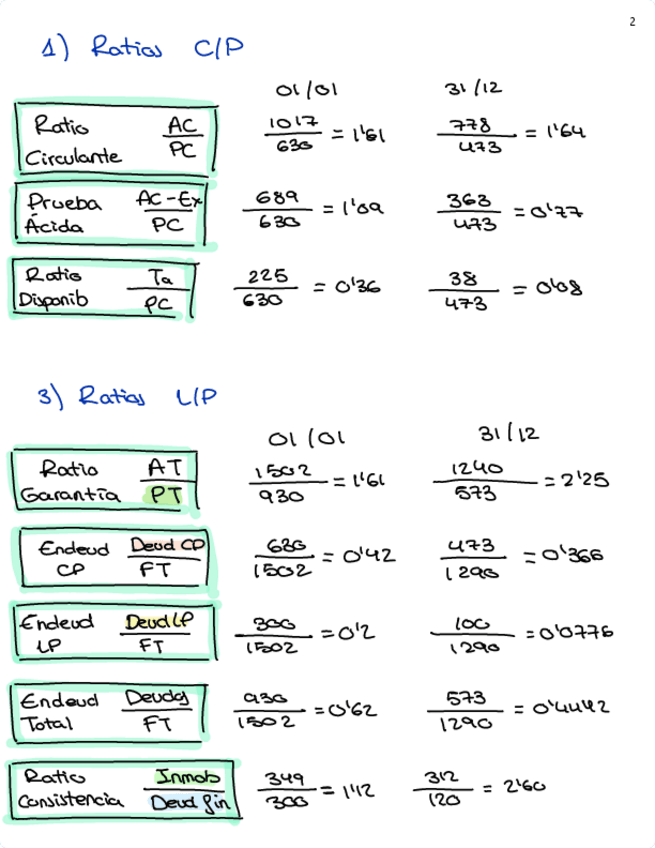 2
1) Ratios C/P
01/01 31/12
Ratio Circulante AC/PC 1017/630 = 1'61 778/473 = 1'64
Prueba Ácida AC-Ex/PC 689/630 = 1'09 363/473 = 0'77
Ratio Disponib Ta/PC 225/630 = 0'36 38/473 = 0'08
3) Ratios L/P
01/01 31/12
Ratio Garantía AT/PT 1502/930 = 1'61 1240/573 = 2'25
Endeud CP Deud CP/FT 630/1502 = 0'42 473/1290 = 0'366
Endeud LP Deud LP/FT 300/1502 = 0'2 100/1290 = 0'0776
Endeud Total Deudas/FT 930/1502 = 0'62 573/1290 = 0'4442
Ratio Consistencia Inmob/Deud fin 349/300 = 1'12 312/120 = 2'60